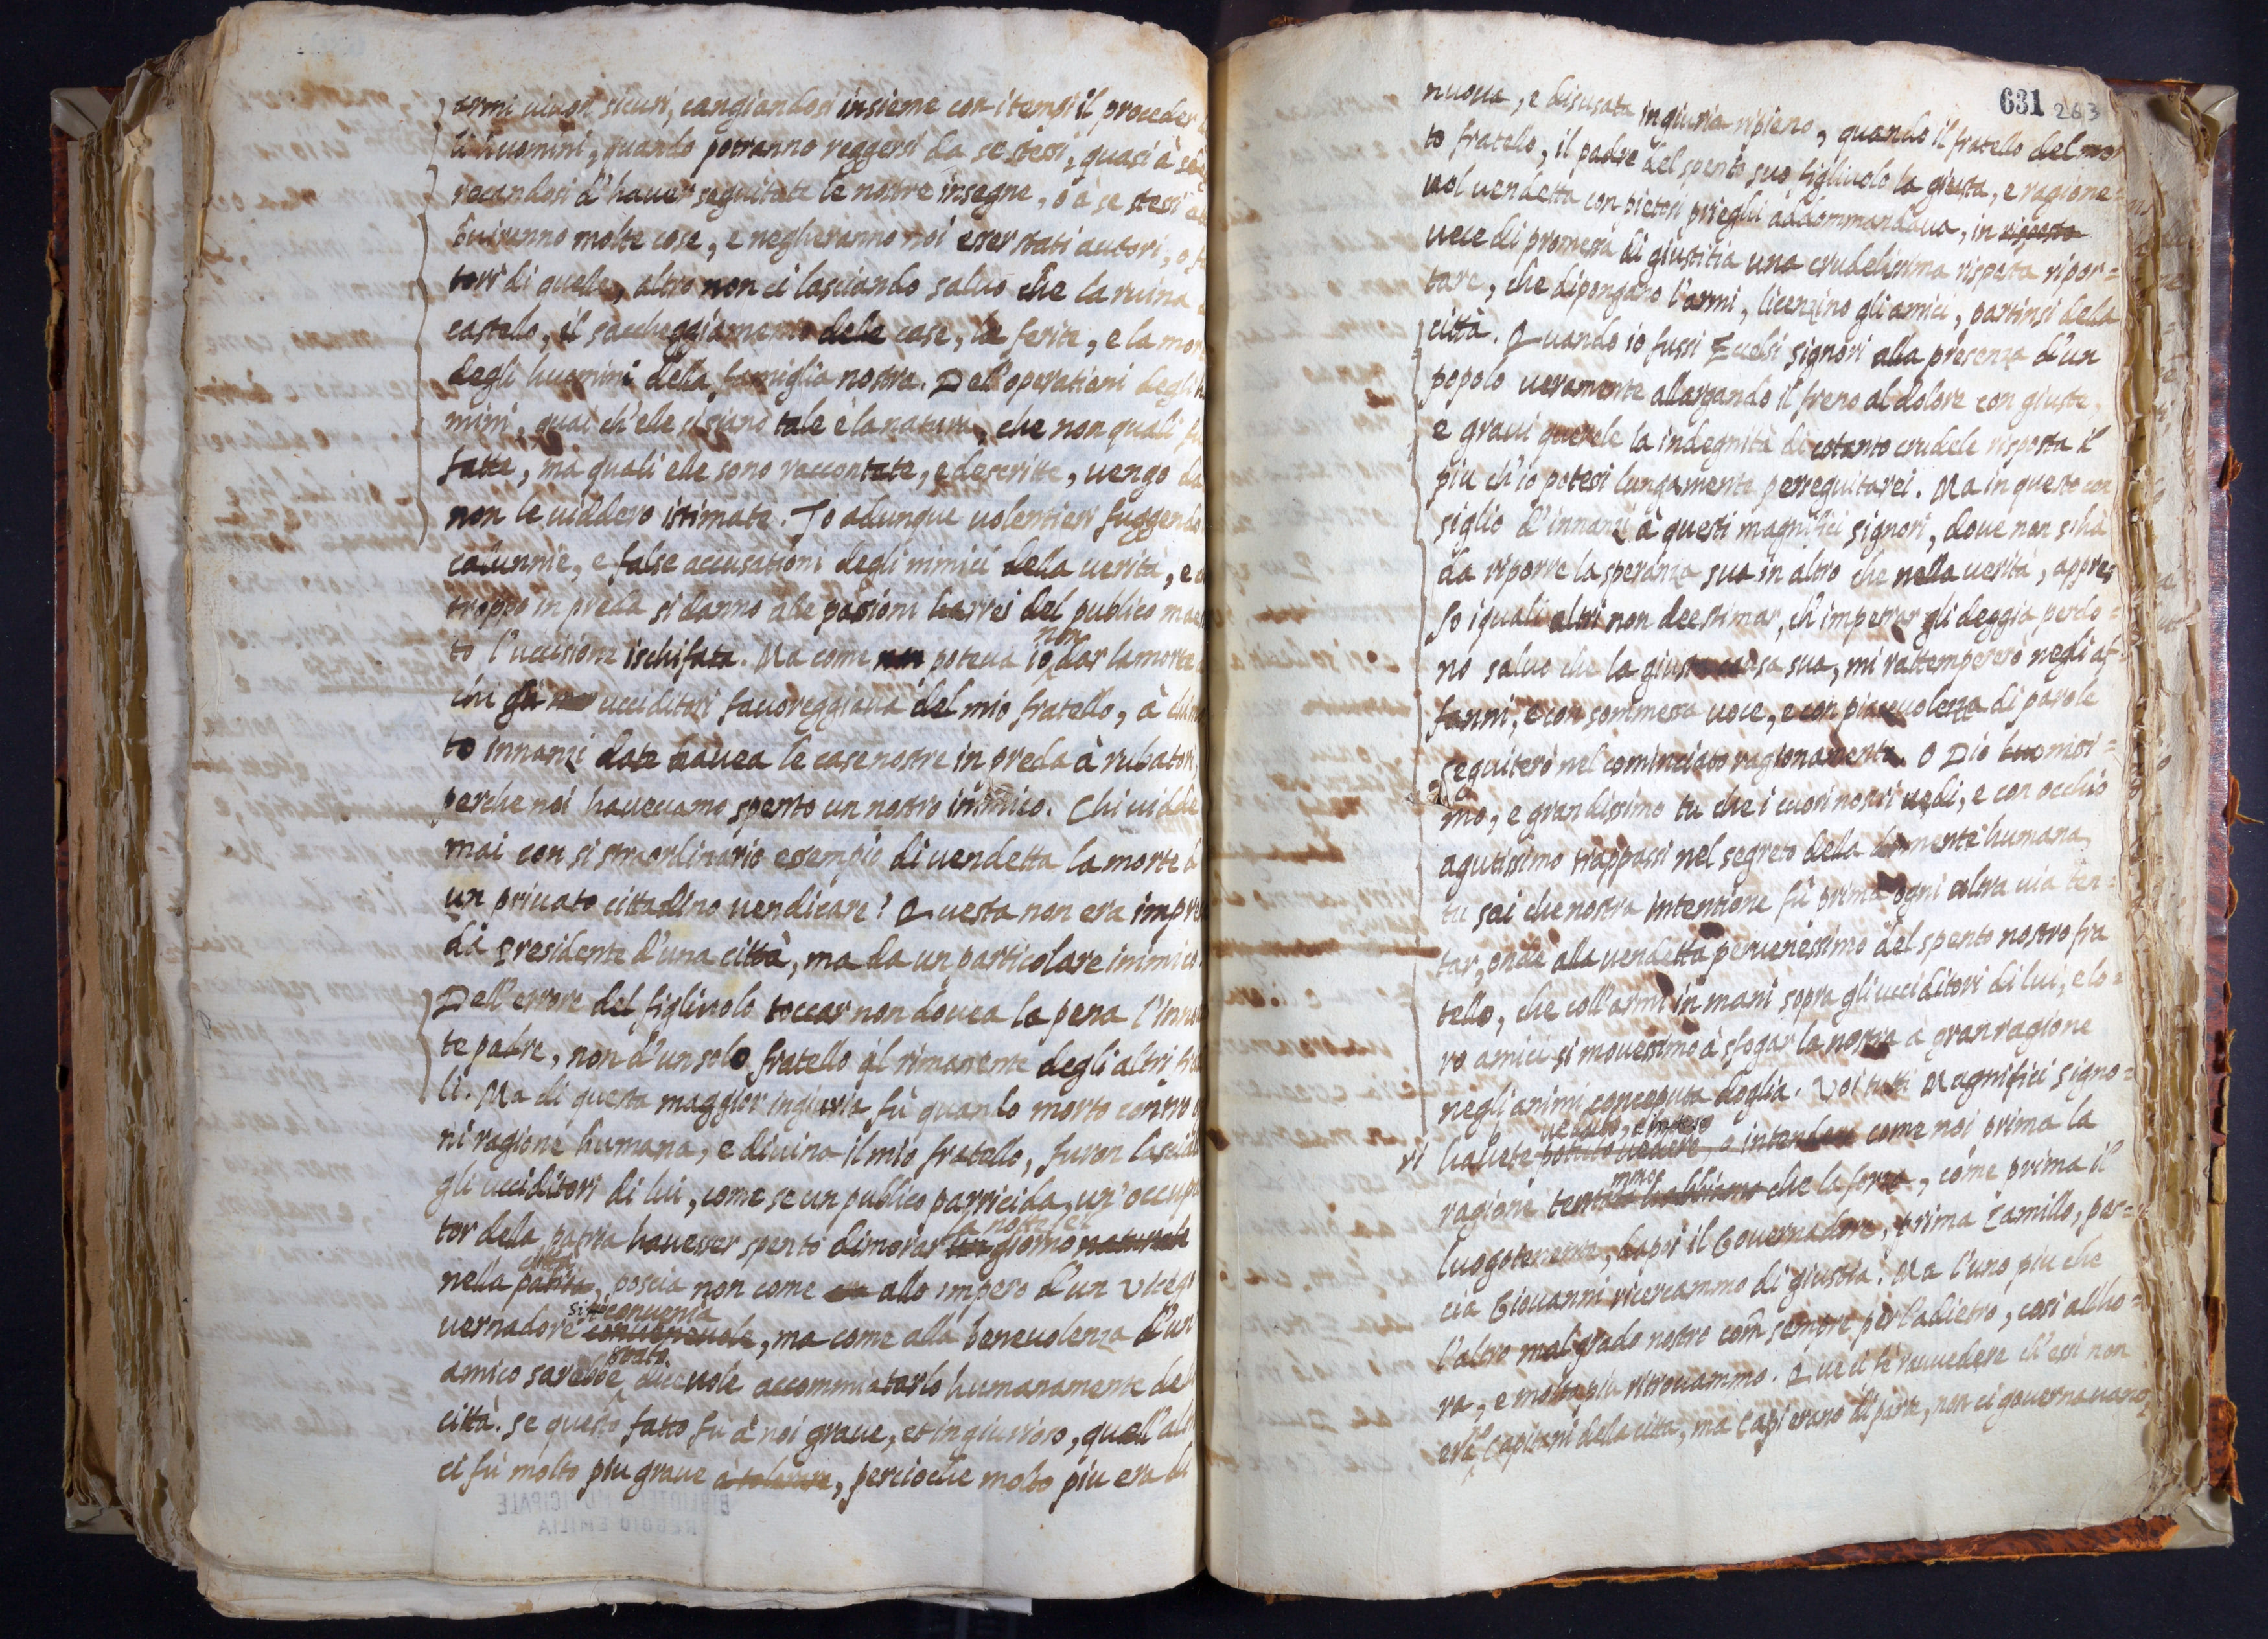 armi uiuon sicuri, cangiandosi insieme con i tempi il proceder
li huomini, quando potranno reggersi da se stessi, quasi à
recandosi d'hauer seguitate le nostre insegne, ò à se stessi
buiranno molte cose, e negheranno noi esser stati autori, o
tori di quelle, altro non ci lasciando saluo che la ruina
castello, il saccheggiamento delle case, le ferite, e la mor
degli huomini della famiglia nostra. Dell'operationi degli
mini, quai ch'elle si siano tale è la natura, che non quali
fatte, mà quali elle sono raccontate, e descritte, uengo da
non le uiddero istimate. Io adunque uolentieri fuggendo
calunnie, e false accusationi degli nimici della uerità, e
troppo in preda si danno alle passioni harrei del publico
to l'uccisione ischifata. Ma come non poteua io non dar la morte
chi gli ucciditori fauoreggiaua del mio fratello, à chi
to innanzi date hauea le case nostre in preda à rubatori,
perche noi haueuamo spento un nostro inimico. Chi uidde
mai con si straordinario esempio di uendetta la morte
un priuato cittadino uendicare? Questa non era impre
da Presidente d'una città, ma da un particolare inimico.
Dell'errore del figliuolo toccar non douea la pena l'inno
te padre, non d'un solo fratello il rimanente degli altri
li. Ma di questa maggior ingiuria fù quando morto contro
ni ragione humana, e diuina il mio fratello, furon lasciati
gli ucciditori di lui, come se un publico parricida, un'occupa
tor della patria hauesser spento dimorar la notte, el giorno naturale
nella patria città, poscia non come allo impero d'un Vicego
uernadore conueneuole si conuenia, ma come alla beneuolenza d'un
amico sarebbe stato diceuole accommiatarlo humanamente del
città. Se questo fatto fu à noi graue, et ingiurioso, quell'al
ci fù molto piu graue à tolerare, percioche molto piu era di
631 263
nuoua, e disusata ingiuria ripieno, quando il fratello del mor
to fratello, il padre del spento suo figliuolo la giusta, e ragione=
uol uendetta con pietosi prieghi addommandaua, in risposta
uece di promessa di giustitia una crudelissima risposta ripor=
tare, che dipongano l'armi, licenzino gli amici, partinsi della
città. Quando io fussi Eccelsi signori alla presenza d'un
popolo ueramente allargando il freno al dolore con giuste,
e graui querele la indegnità di cotanto crudele risposta il
piu ch'io potessi lungamente perseguitarei. Ma in questo con
siglio d'innanzi à questi magnifici signori, doue non si hà
da riporre la speranza sua in altro che nella uerità, appres
so i quali altri non dee stimar, ch'impetrar gli deggia perdo=
no saluo che la giusta causa sua, mi rattempererò negli af=
fanni, e con sommessa uoce, e con piaceuolezza di parole
seguiterò nel cominciato ragionamento. O Dio buonissi=
mo, e grandissimo tu che i cuori nostri uedi, e con occhio
agutissimo trappassi nel segreto della mente humana,
tu sai che nostra intentione fù prima ogni altra uia ten=
tar, onde alla uendetta peruenessimo del spento nostro fra
tello, che coll'armi in mani sopra gli ucciditori di lui, e lo=
ro amici si mouessimo à sfogar la nostra à gran ragione
negli animi conceputa doglia. Voi tutti Magnifici signo=
ri hauete potuto uedere, e intendere ueduto, e inteso come noi prima la
ragione tentata habbiamo che la forza, come prima il
luogotenente, dapoi il Gouernadore, prima Camillo, pos=
cia Giouanni ricercammo di giustitia. Ma l'uno piu che
l'altro mal grado nostro com sempre per l'adietro, cosi allho=
ra, e molto piu ritrouammo. Que ci fè rauuedere ch'essi non
era Capitani della città, ma Capi erano di parte, non ci gouernauano,